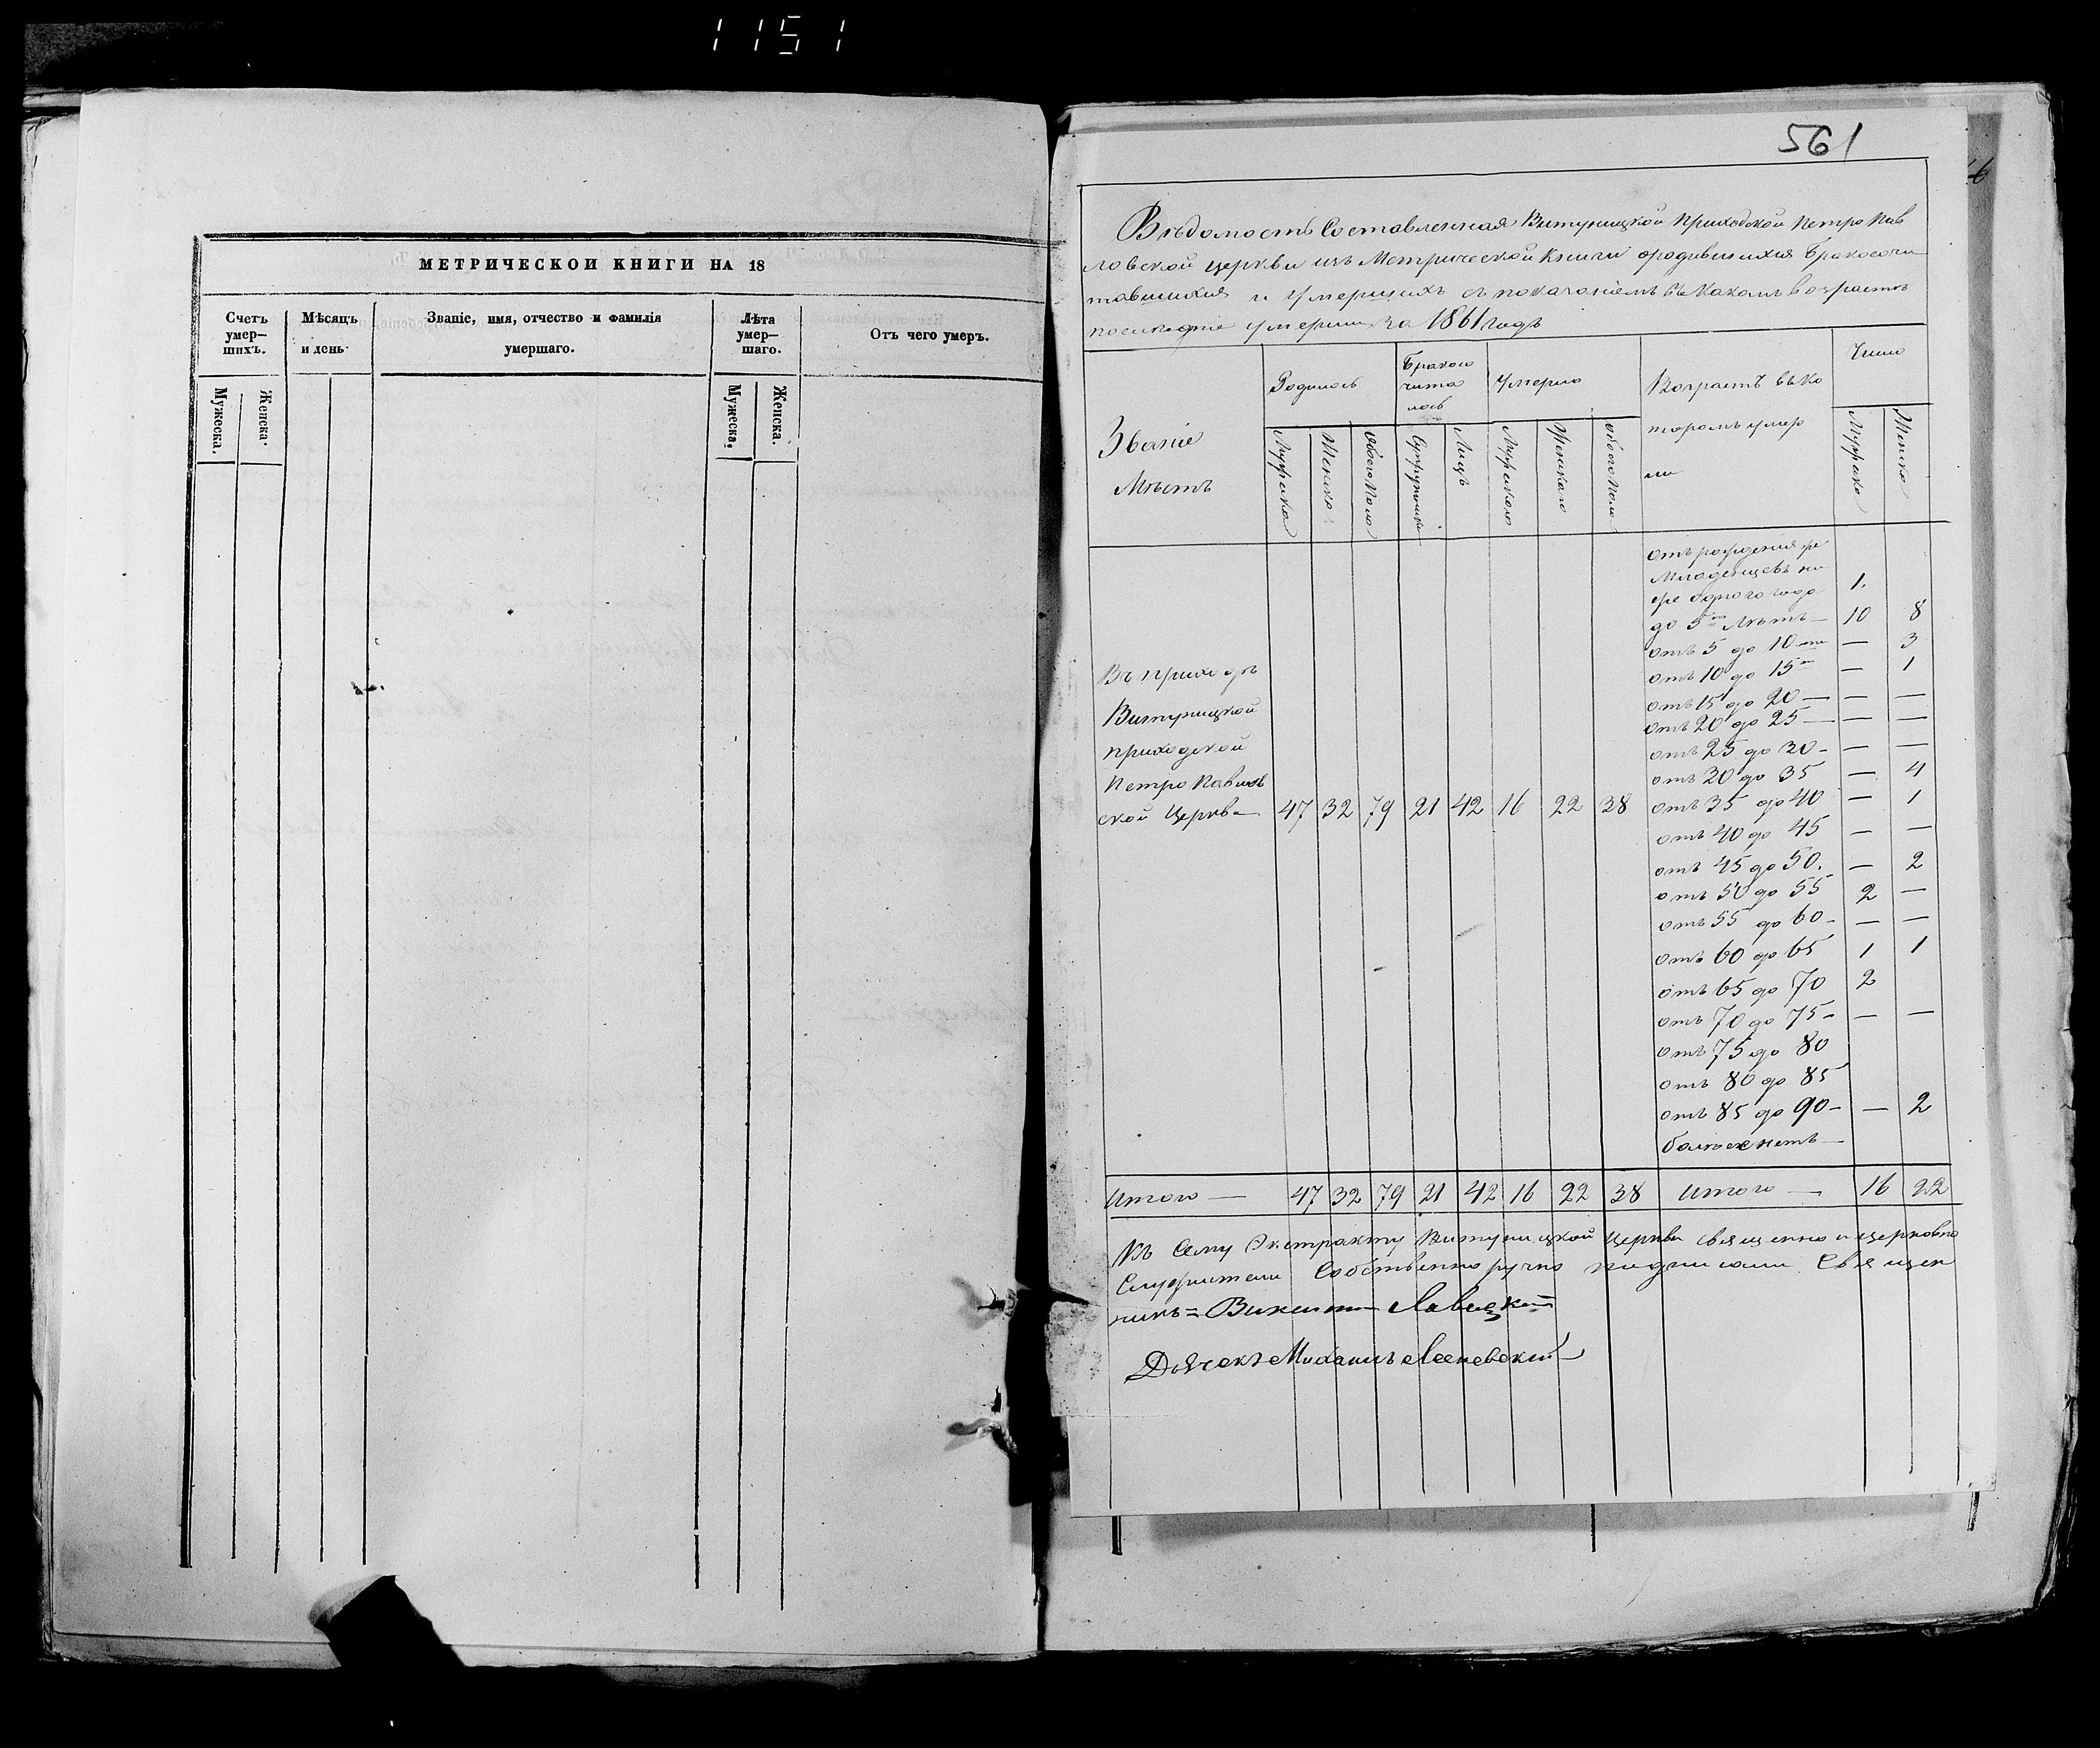 1151
МЕТРИЧЕСКОЙ КНИГИ НА 18
Счетъ умер-шихъ.
Мѣсяцъ и день.
Званіе, имя, отчество и фамилія умершаго.
Лѣта умер-шаго.
Отъ чего умеръ.
Мужеска.
Женска.
Мужеска.
Женска.
561
Вѣдомость Составленная Витуницкой приходской Петро Пав
ловской церкви изъ Метрической Книги ородившихся Бракосочи
тавшихся и Умершихъ съ показаніемъ въ какомъ возрастѣ
последніе умерши за 1861 годъ
Званіе Мѣстъ
Родилось
Бракосо чита лось
Умерло
Возрастъ въ ко торомъ умер ли
Число
Мужеска
Женска
Обоего Пола
Супружник
Лицъ
Мужескаго
Женскаго
обоего Пола
Мужеска
Женска
отъ рожденія же
Младенцевъ ни
же одного года 1.
до 5 ти Лѣтъ — 10 8
отъ 5 до 10 ти — 3
отъ 10 до 15 ти — 1
отъ 15 до 20 — — —
отъ 20 до 25 — — —
отъ 25 до 30 - — —
отъ 30 до 35 — 4
Въ приходѣ
Витуницкой
приходской
Петро Павлов
ской Церкви 47 32 79 21 42 16 22 38 отъ 35 до 40 — 1
отъ 40 до 45 — —
отъ 45 до 50. — 2
отъ 50 до 55 2 —
отъ 55 до 60 - — —
отъ 60 до 65 1 1
отъ 65 до 70 2
отъ 70 до 75 - — —
отъ 75 до 80
отъ 80 до 85
отъ 85 до 90 - — 2
болѣе нетъ —
Итого — 47 32 79 21 42 16 22 38 Итого — 16 22
Къ Сему Экстракту Витуницкой Церкви священно и церковно
Служители Собственно ручно подписали Священ
никъ = Викентій Лавецкій
Дьячекъ Михаилъ Ясеневскій